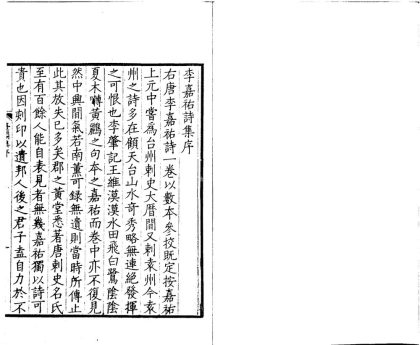 李嘉祐詩集序
右唐李嘉祐詩一卷以數本參挍既定按嘉祐
上元中嘗爲台州刺史大曆間又刺袁州今袁
州之詩多在顧天台山水奇秀略無連絕發揮
之可恨也李肇記王維漠漠水田飛白鷺陰陰
夏木囀黄鸝之句本之嘉祐而卷中亦不復見
然中興間氣若南薰可録無遺則當時所傳止
此其放失已多矣郡之黄堂悉著唐刺史名氏
至有百餘人能自表見者無幾嘉祐獨以詩可
貴也因刻印以遺邦人後之君子盍自力於不